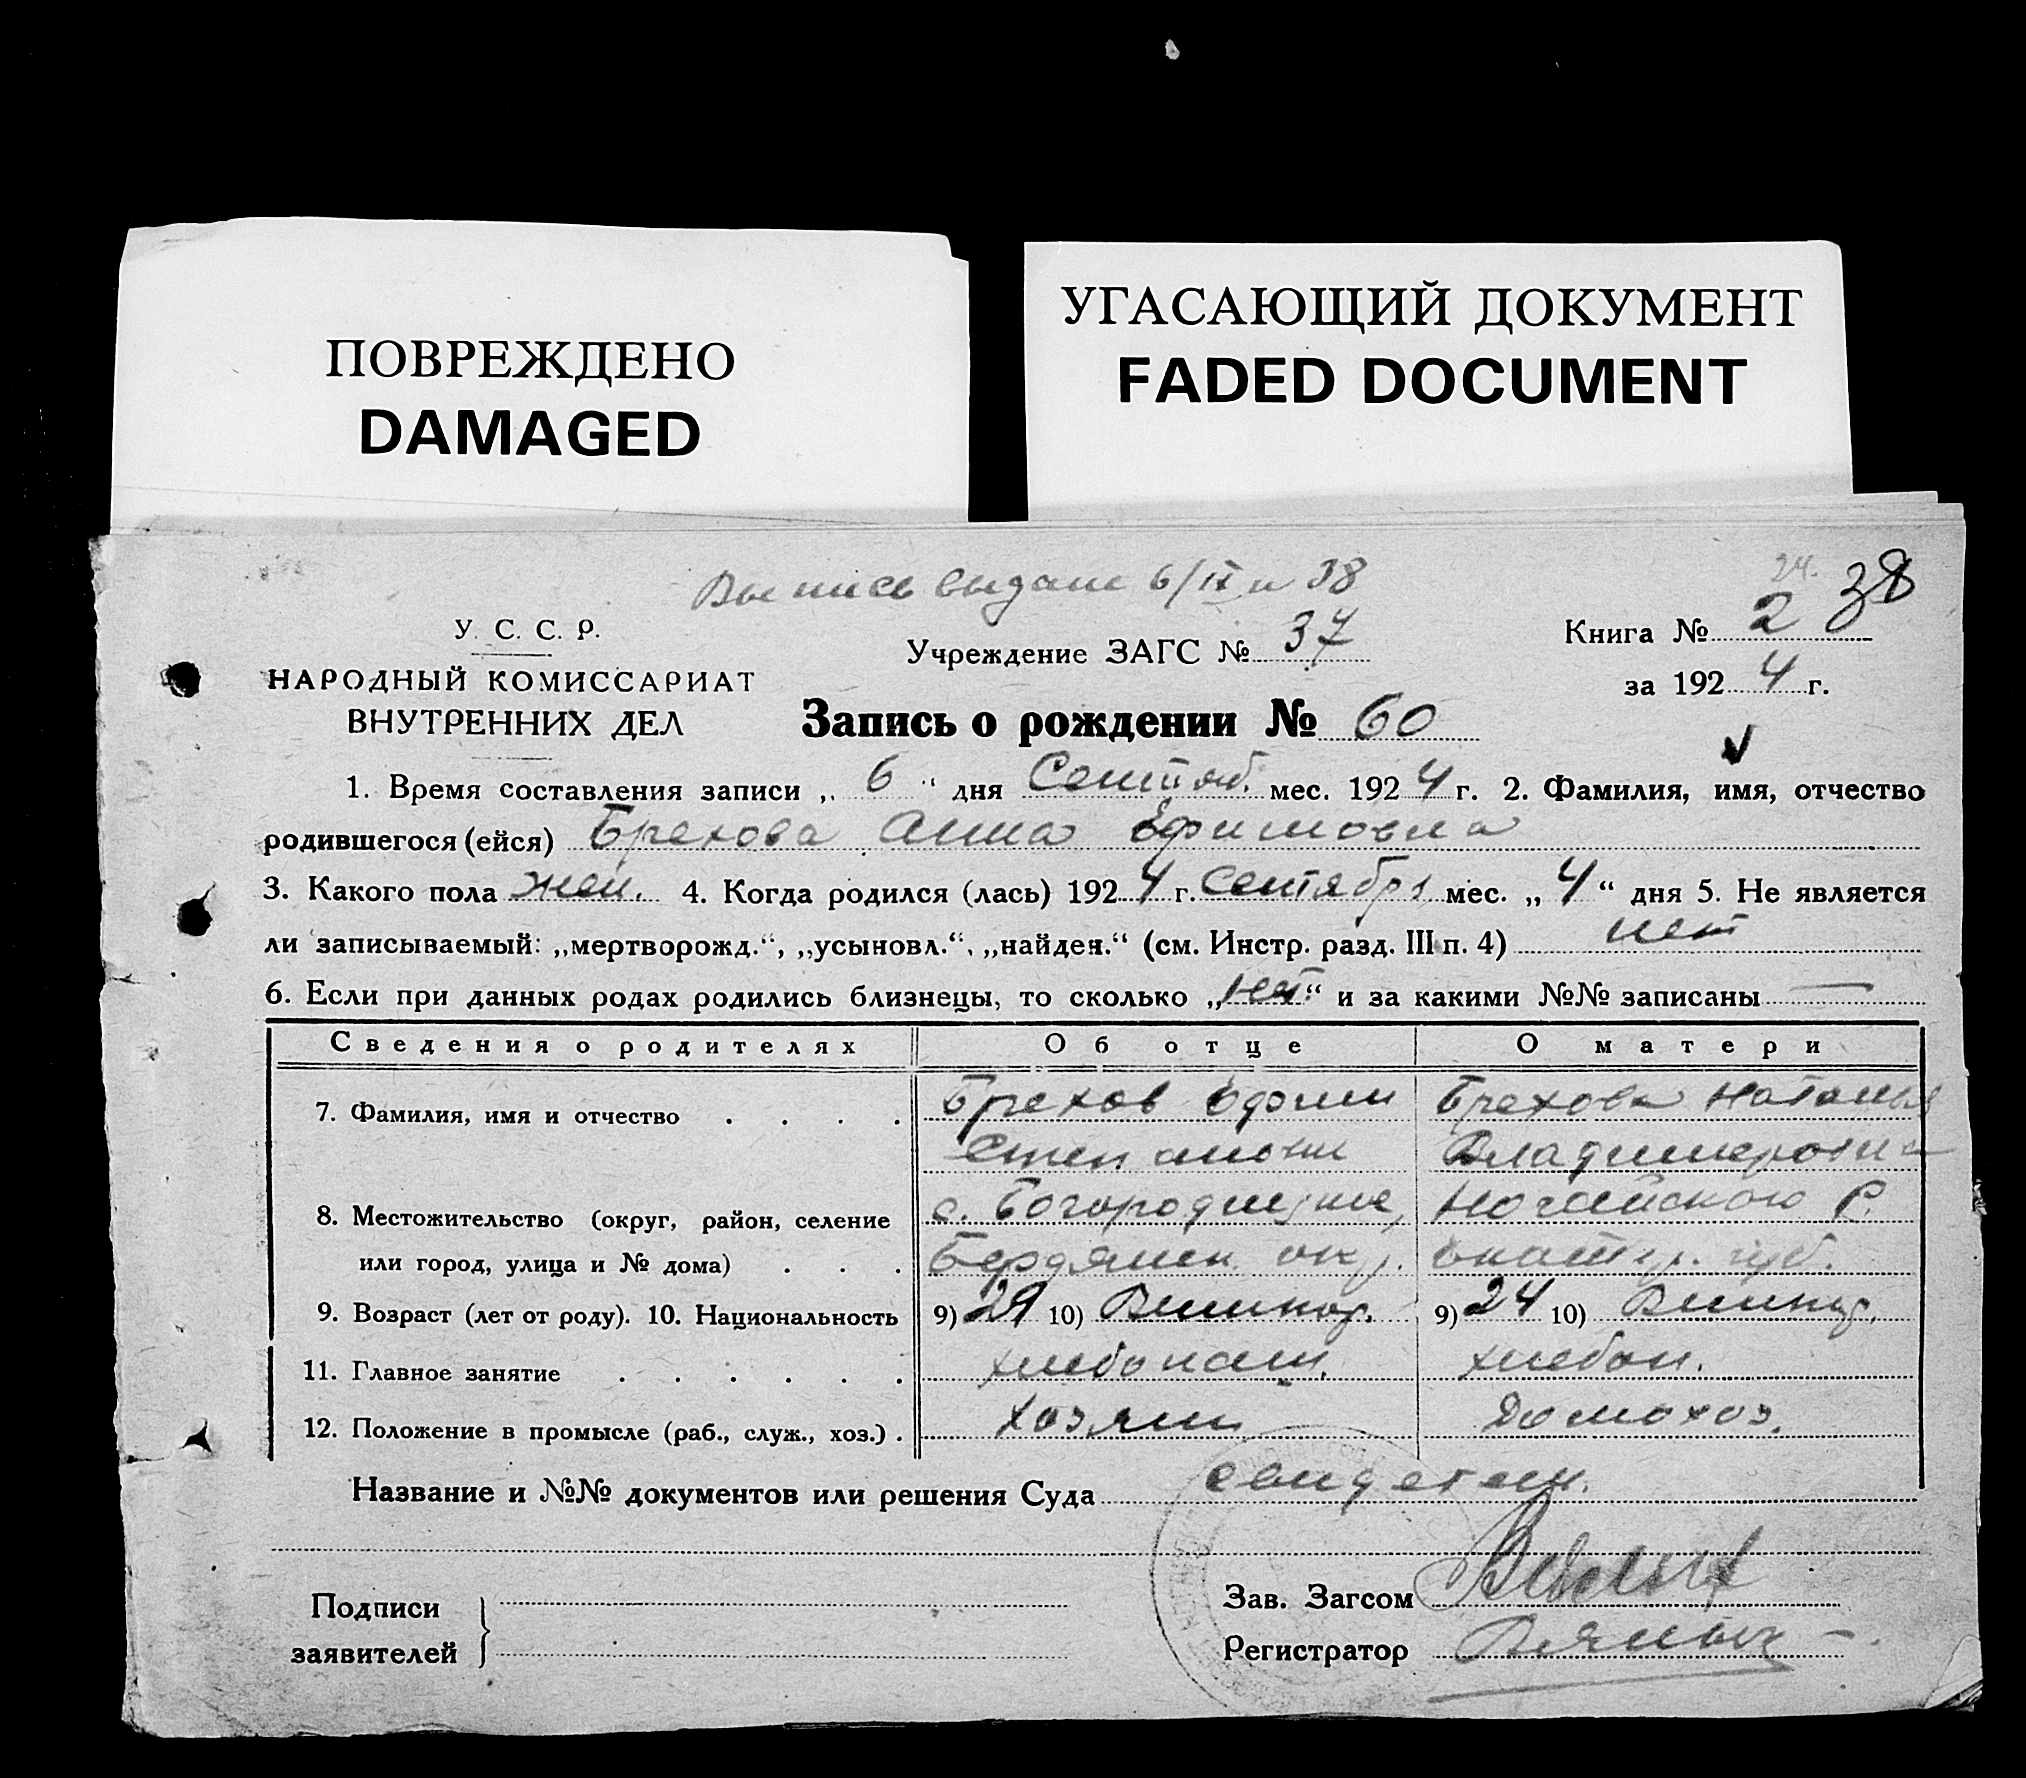 ПОВРЕЖДЕНО
DAMAGED
УГАСАЮЩИЙ ДОКУМЕНТ
FADED DOCUMENT
Выпись выдана 6/IX 38
24. 38
У. С. С. Р.
НАРОДНЫЙ КОМИССАРИАТ
ВНУТРЕННИХ ДЕЛ
Учреждение ЗАГС № 37
Книга № 2
за 1924 г.
Запись о рождении № 60
1. Время составления записи „ 6 “ дня Сентяб. мес. 1924 г. 2. Фамилия, имя, отчество
родившегося (ейся) Брехова Анна Ефимовна
3. Какого пола жен. 4. Когда родился (лась) 1924 г. Сентября мес. „ 4 “ дня 5. Не является
ли записываемый: „мертворожд.“, „усыновл.“, „найден.“ (см. Инстр. разд. III п. 4) нет
6. Если при данных родах родились близнецы, то сколько „ нет “ и за какими №№ записаны —
Сведения о родителях Об отце О матери
7. Фамилия, имя и отчество . . . . Брехов Ефим Брехова Наталья
Степанович Владимировна
8. Местожительство (округ, район, селение с. Богородицкое, Ногайского Р.
или город, улица и № дома) . . . Бердянск. окр. Екатер. губ.
9. Возраст (лет от роду). 10. Национальность 9) 29 10) 9) 24 10)
11. Главное занятие . . . . . . хлебопаш. хлебоп.
12. Положение в промысле (раб., служ., хоз.) . хозяин Домохоз.
Название и №№ документов или решения Суда свидетели.
Подписи
заявителей
Зав. Загсом
Регистратор